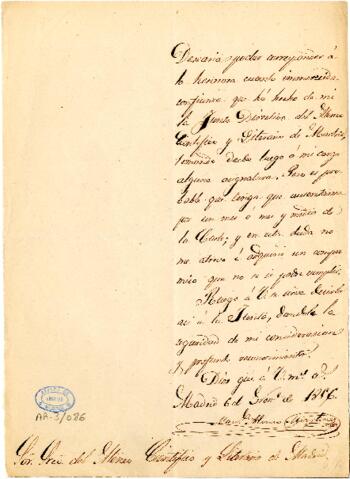 Desearia poder corresponder á
la honrosa cuanto inmerecida
confianza que ha hecho de mí
la Junta Directiva del Ateneo
Cientifico y Literario de Madrid,
tomando desde luego á mi cargo
alguna asignatura. Pero es pro-
bable que tenga que ausentarme
por un mes ó mes y medio de
la Corte, y en esta duda no
me atrevo á adquirir un compro-
miso que no se si podre cumplir.
Ruego á V. se sirva decirlo
asi á la Junta, dandole la
seguridad de mi consideracion
y profundo reconocimiento.
Dios gue á V. m.s a.s
Madrid 6 de de 18
AR-3/086
Sor. Srio. del Ateneo Cientifico y Literario de Madrid